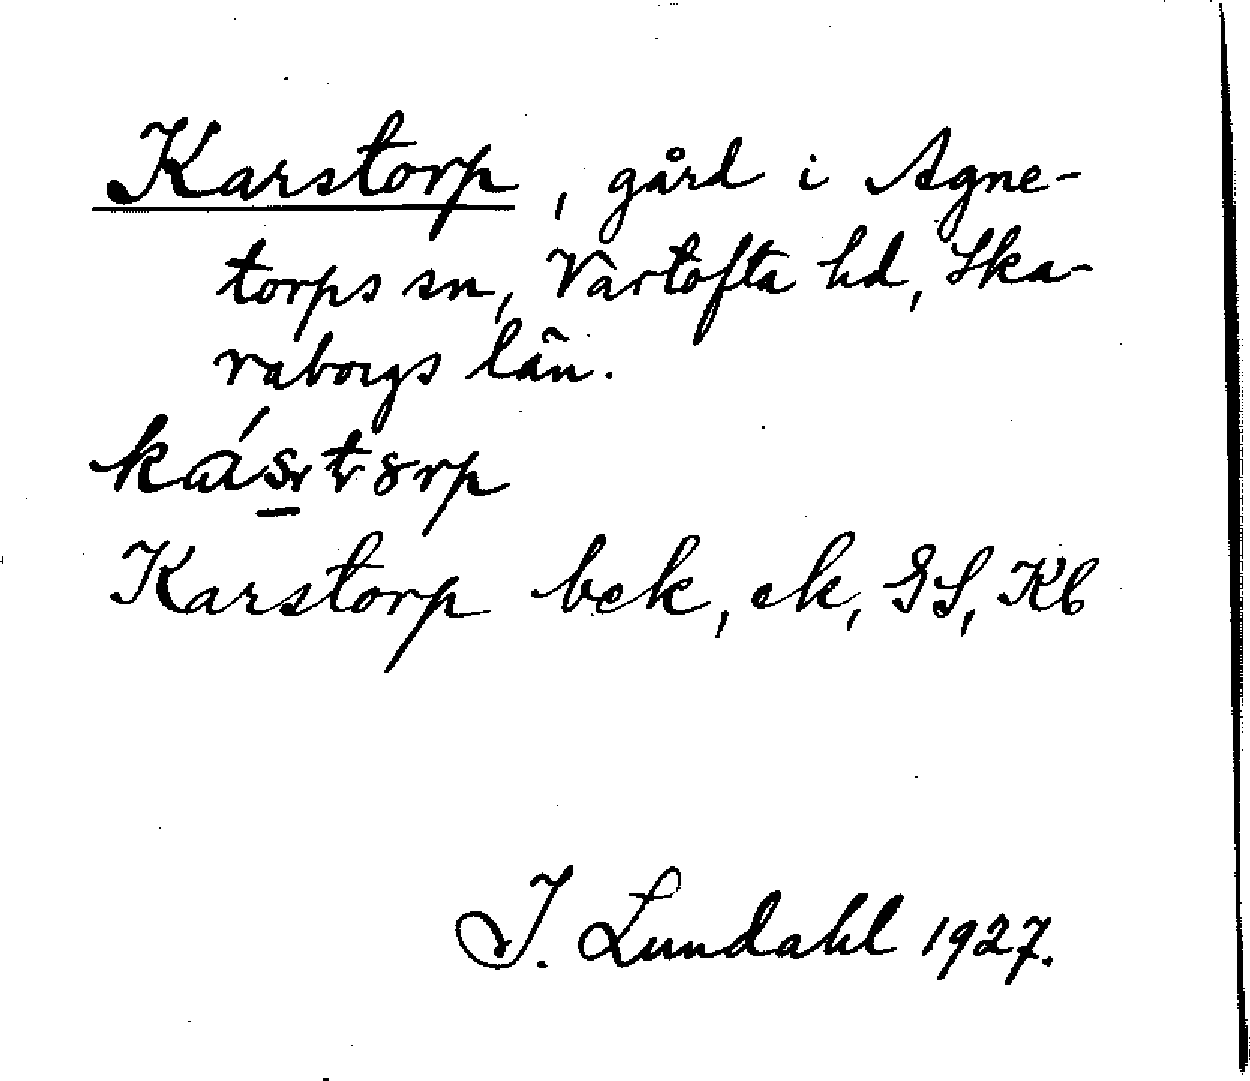 Karstorp, gård i Agne-
torps sn, Vartofta hd, Ska-
raborgs län.
Karstorp bek, ek, GS, Kb
I. Lundahl 1927.